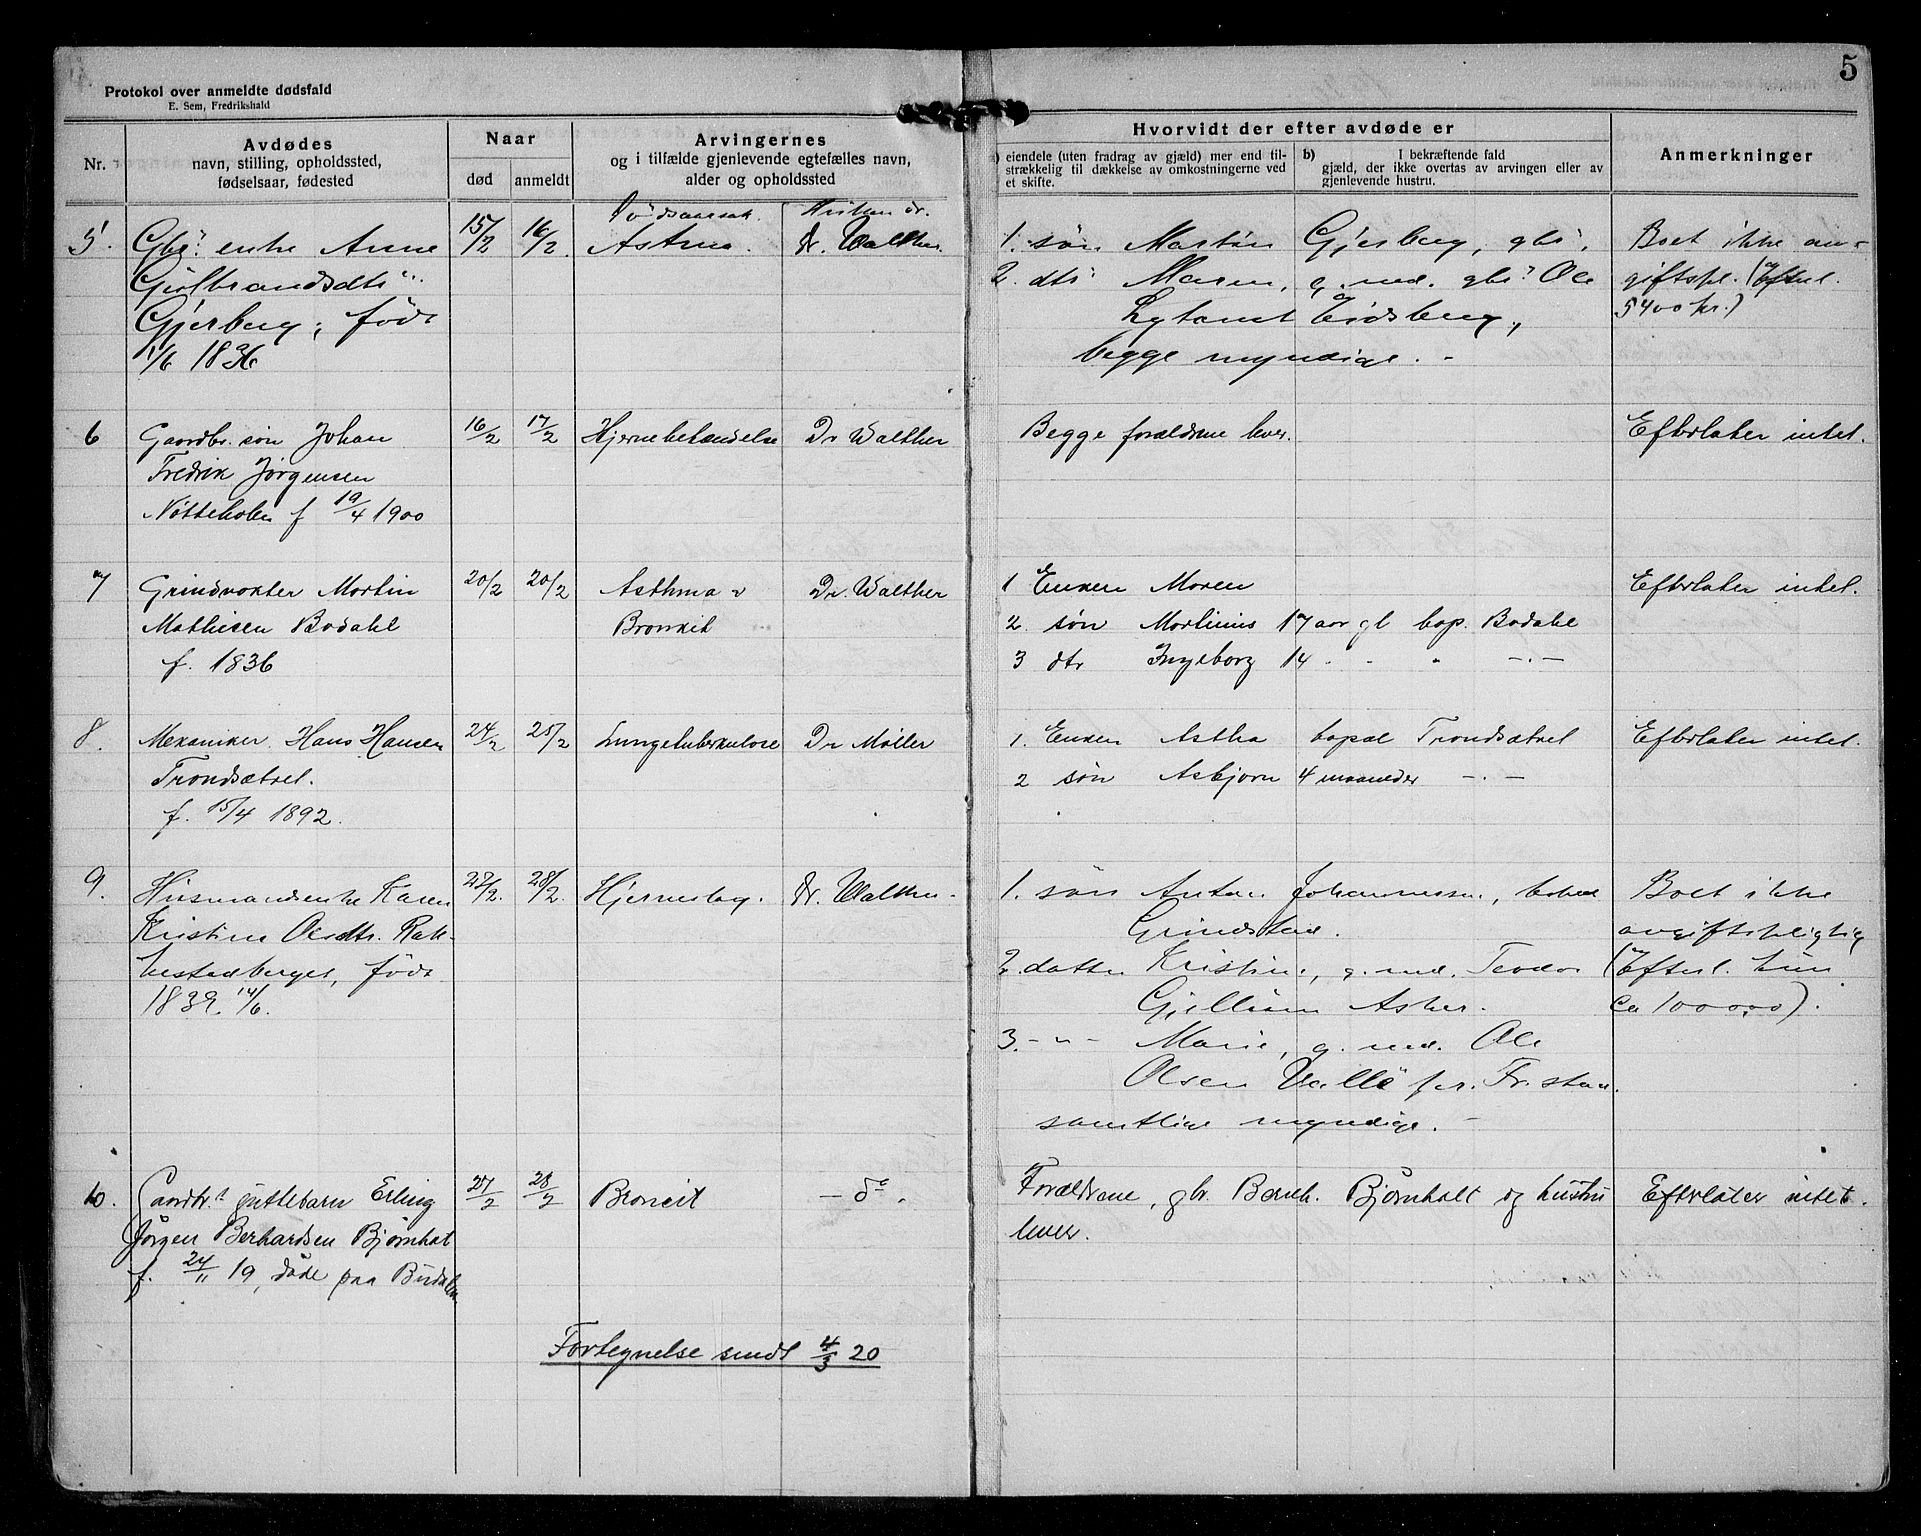 5
Protokol over anmeldte dødsfald
E. Sem, Fredrikshald
Nr.
Avdødes
navn, stilling, opholdssted,
fødselsaar, fødested
Naar
død
anmeldt
Arvingernes
og i tilfælde gjenlevende egtefælles navn,
alder og opholdssted
Hvorvidt der efter avdøde er
eiendele (uten fradrag av gjæld) mer end til-
strækkelig til dækkelse av omkostningerne ved
et skifte.
b) I bekræftende fald
gjæld, der ikke overtas av arvingen eller av
gjenlevende hustru.
Anmerkninger
Dødsaarsak.
5. Gbr. enke Anne 15/2 16/2. Astma. dr. Walther. 1. søn Martin Gjerberg, gbr. Boet ikke av-
Gulbrandsdtr. 2. dtr Maren, g. med. gbr. Ole giftspl. (Efterl.
Gjerberg, født Eidsberg, 5400 kr.)
1/6 1836 begge myndige. -
6 Gaardbr. søn Johan 16/2 17/2 Hjernebetændelse Dr Walther Begge forældrene lever. Efterlater intet.
Fredrik Jørgensen
f 19/4 1900
7 Grindvokter Martin 20/2 20/2 Asthma Dr. Walther 1 Enken Maren Efterlater intet.
Mathisen Bodahl Bronkit 2. søn Martinius 17 aar gl bop. Bodahl
f. 1836 3 dtr Ingeborg 14 - - " -.-
8. Mekaniker Hans Hansen 24/2 25/2 Lungetuberkulose Dr Møller 1. Enken Astha bopæl Trondsætret Efterlater intet.
Trondsætret. 2 søn Asbjørn 4 maaneder -.-
f. 15/4 1892.
9. Husmandsenke Karen 28/2. Hjerneslag. dr. Walther. 1. søn Anton Johannessen, bosat Boet ikke
Kristine Olsdtr. Rak- Grindstad. avgiftspligtig
kestadberget, født 2. datter Kristine, g. med. Teodor (Efterl. kun
1839. 14/6. Gjellum Asker. ca 100,00).
3. -"- Marie, g. med. Ole
Olsen Vallø pr. Fr.stad.
samtlige myndige. -
10. Gaardbr.s guttebarn Erling 27/2 28/2 Broncit - do. Forældrene, gbr. Bernh. Bjørnholt og hustru Efterlater intet.
Jørgen Berhardsen Bjørnholt lever.
f. 24/11 19, døde paa Budalen
Fortegnelse sendt 4/3 20